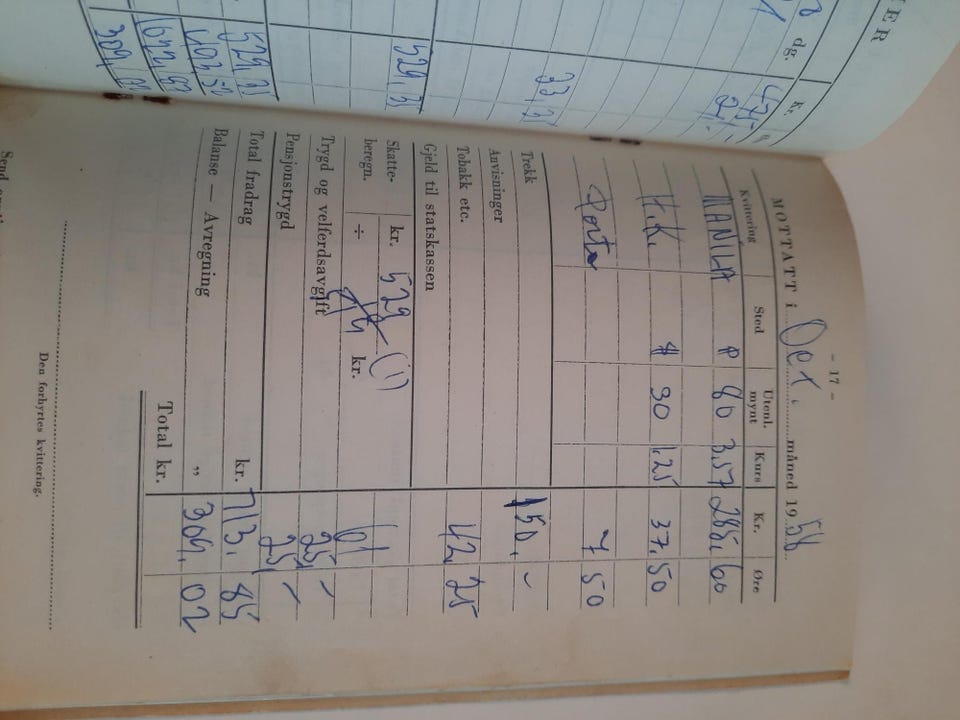 ER
dg.
Kr.
475
33,35
529,35
529,31
403,51
309,02
- 17 -
MOTTATT i Oct. måned 1958
Kvittering Sted Utenl. mynt Kurs Kr. Øre
MANILA P 80 3,57 285,60
H.K. $ 30 1,25 37,50
Porto 7 50
Trekk 150,-
Anvisninger
Tobakk etc. 42,25
Gjeld til statskassen
Skatte- kr. 529 (i)
beregn. ÷ kr. 61
Trygd og velferdsavgift 25,-
Pensjonstrygd 25,-
Total fradrag kr. 713,85
Balanse — Avregning „ 309,02
Total kr.
Den forhyrtes kvittering.